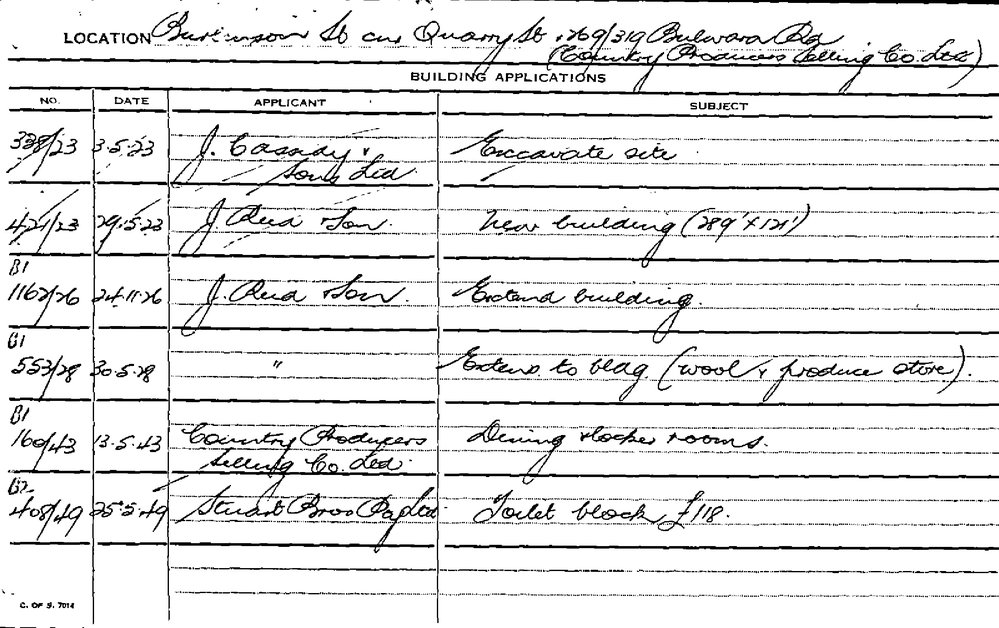 LOCATION St cnr Quarry St 269/319 Bulwara Rd
(Country Producers Selling Co. Ltd)
BUILDING APPLICATIONS
NO. DATE APPLICANT SUBJECT
338/23 3.5.23 J. Cassidy & Excavate site
Sons Ltd
421/23 29.5.23 J. & Son. New building (289' x 121')
B1
1162/26 24.11.26 J. & Son. Extend building.
B1
553/28 30.5.28 " Extens to bldg (wool & produce store).
B1
160/43 13.5.43 Country Producers Dining & locker rooms.
Selling Co. Ltd.
B2
408/49 25.5.49 Stuart Bros Pty Ltd Toilet block £118.
C. OF S. 7014